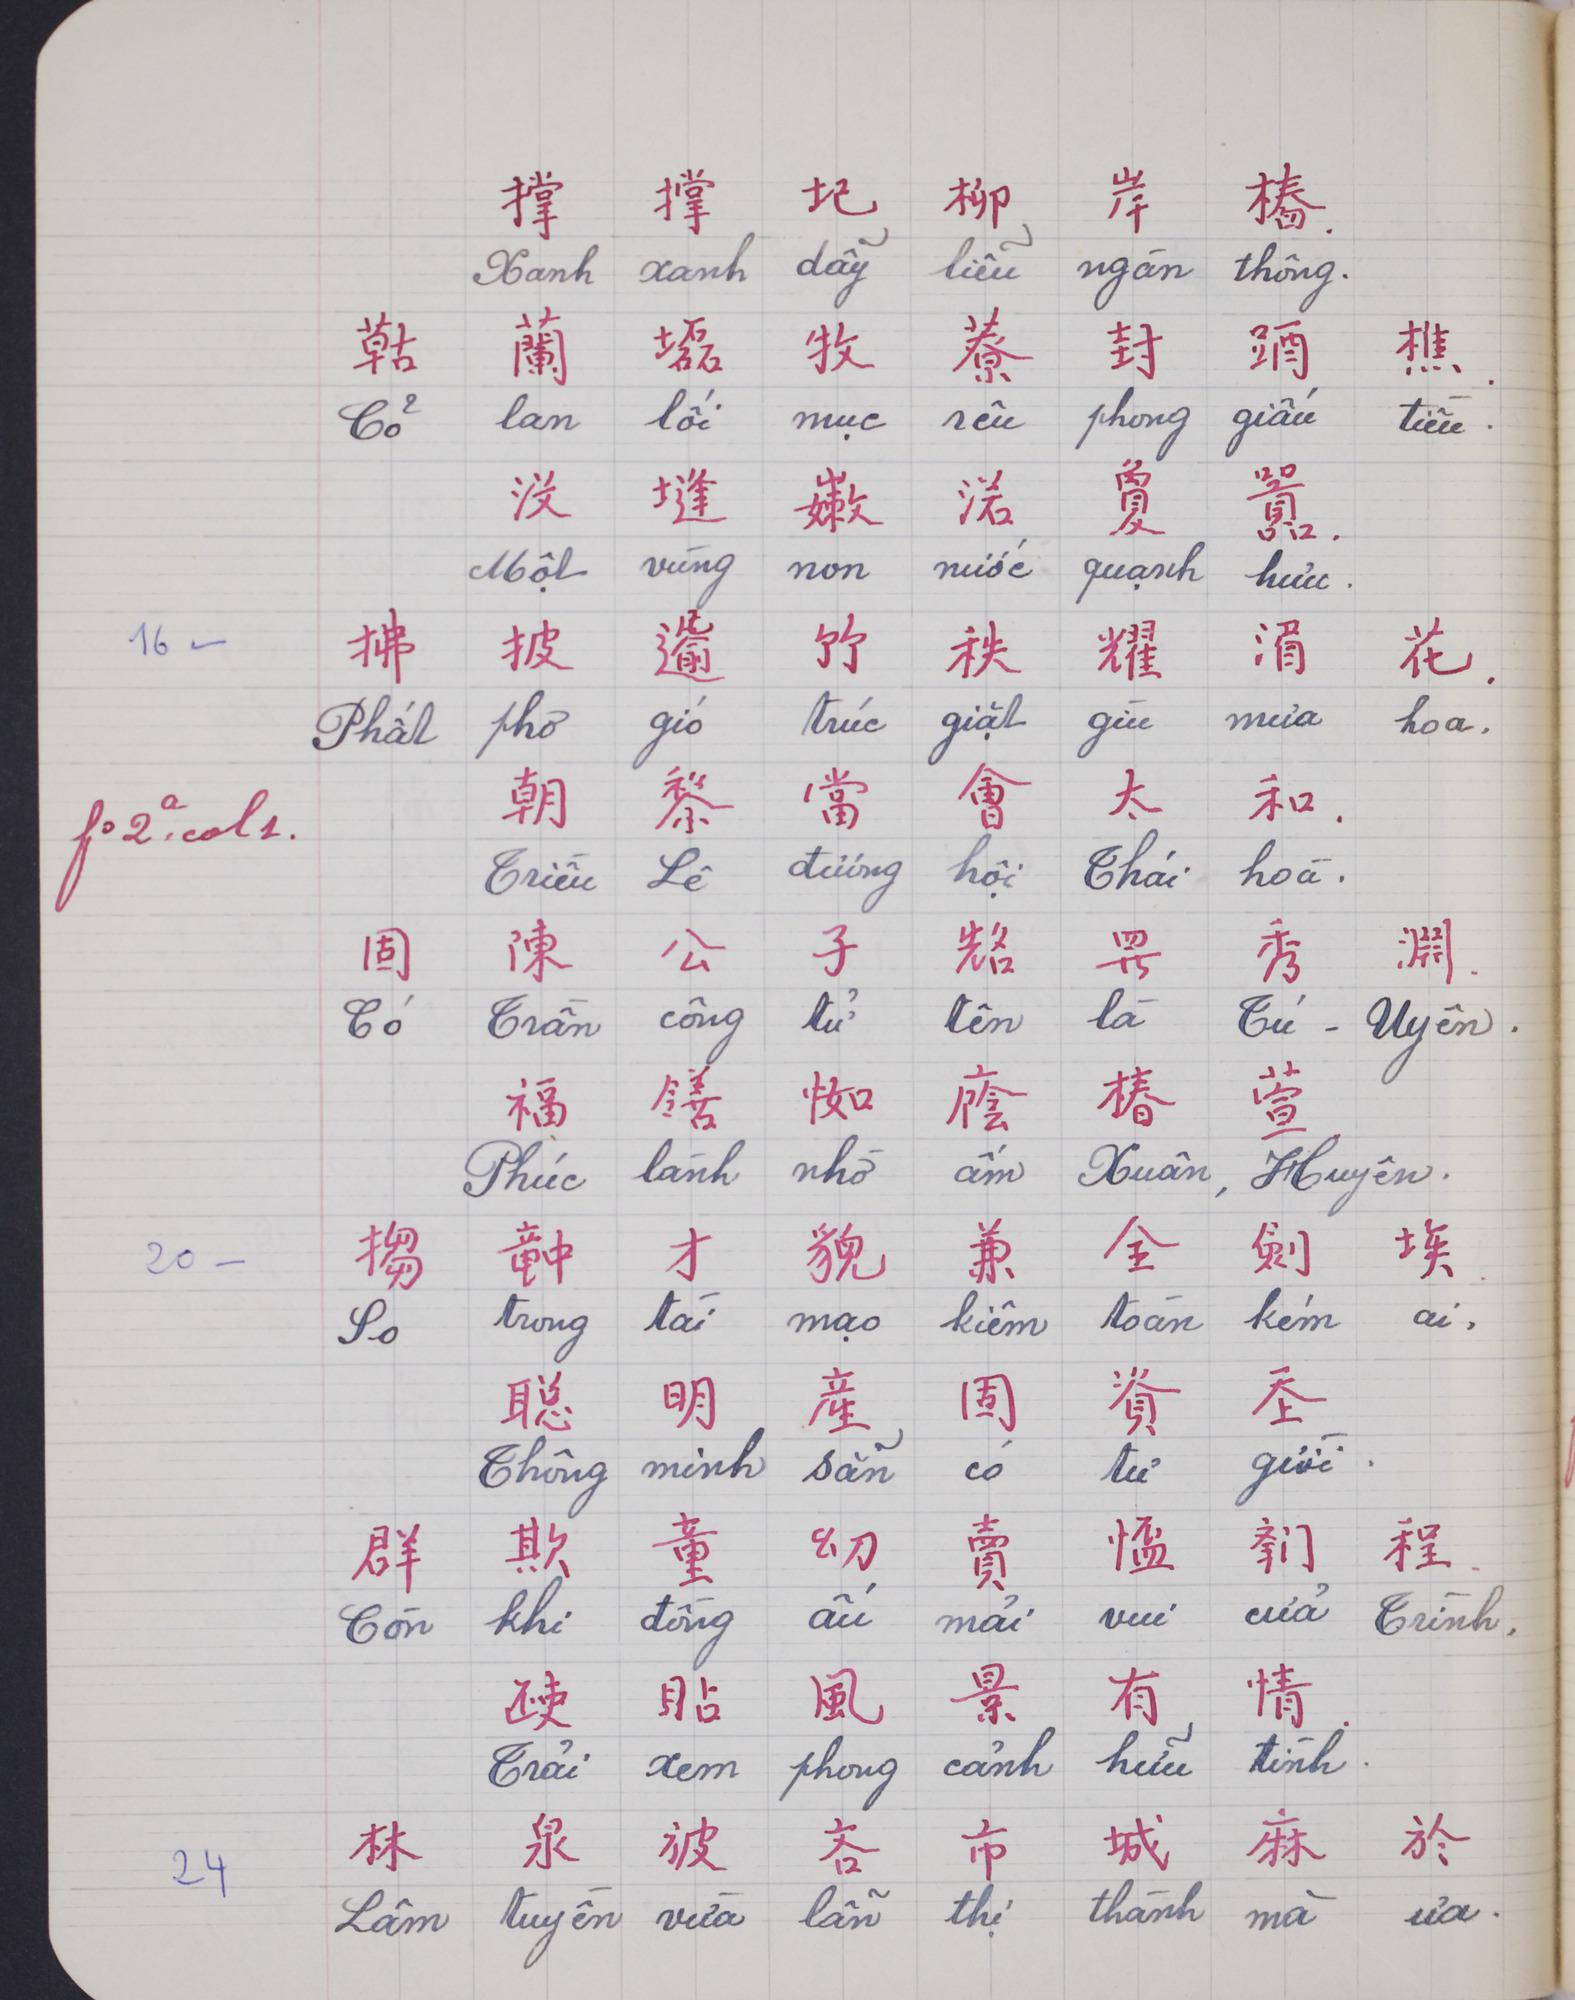 撑 撑 圮 柳 岸 樁.
Xanh xanh dẫy liễu ngàn thông.
蘭 牧 封 樵.
Cỏ lan lối mục rêu phong giấu tiều.
沒 塳 嫩 渃 敻 囂.
Một vùng non nước quạnh hưu.
16 – 拂 披 竹 秩 耀 湄 花.
Phất phơ gió trúc giặt giũ mưa hoa.
朝 黎 當 會 太 和.
f° 2ª. col 1.
Triều Lê đương hội Thái hoà.
固 陳 公 子 𠸜 羅 秀 淵.
Có Trần công tử tên là Tú - Uyên.
福 洳 蔭 椿 萱
Phúc lành nhờ ấm Xuân, Huyên.
20 – 搊 𥪞 才 貌 兼 全 劍 埃.
So trong tài mạo kiêm toàn kém ai.
聰 明 產 固 資 𡗶
Thông minh sẵn có tư giời.
群 欺 童 幼 賣 𢝙 𨷶 程.
Còn khi đồng ấu mải vui cửa Trình.
𣦰 貼 風 景 有 情.
Trải xem phong cảnh hữu tình.
24 林 泉 𣃣 吝 市 城 麻 於
Lâm tuyền vừa lẫn thị thành mà ưa.